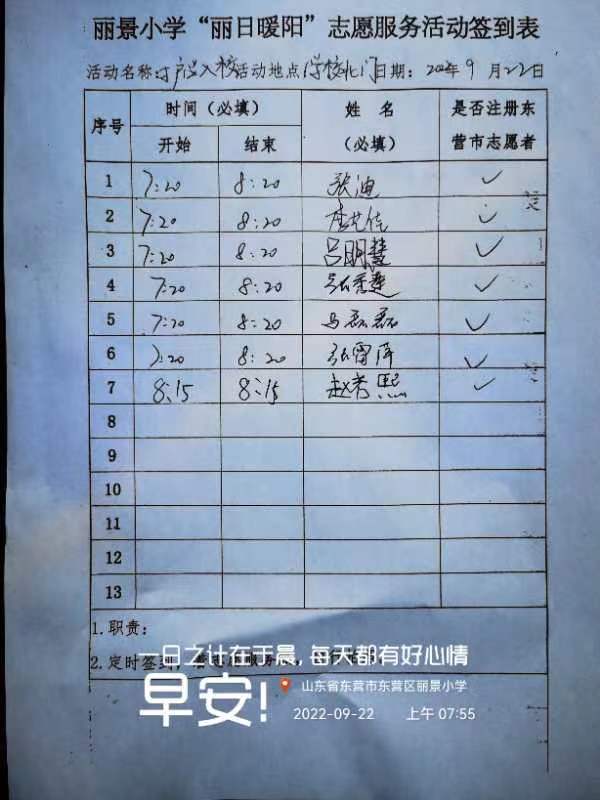 丽景小学“丽日暖阳”志愿服务活动签到表
活动名称: 入校 活动地点 学校北门 日期: 2022年 9 月 22 日
序号 时间（必填） 姓 名 （必填） 是否注册东营市志愿者
开始 结束
1 7:20 8:20 张迪 ✓
2 7:20 8:20 佳 ✓
3 7:20 8:20 吕明慧 ✓
4 7:20 8:20 张秀莲 ✓
5 7:20 8:20 马磊磊 ✓
6 7:20 8:20 张雪萍 ✓
7 8:15 8:15 赵秀熙 ✓
8
9
10
11
12
13
1.职责:
2.定时签到,
一日之计在于晨, 每天都有好心情
早安!
山东省东营市东营区丽景小学
2022-09-22 上午 07:55